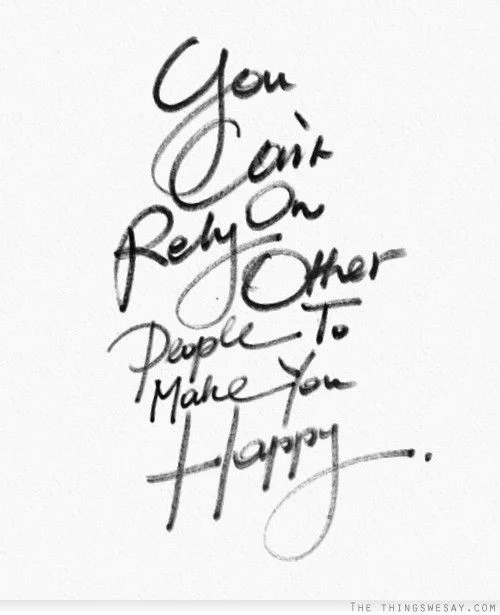 You
Can't
Rely On
Other
People To
Make You
Happy.
THE THINGSWESAY.COM